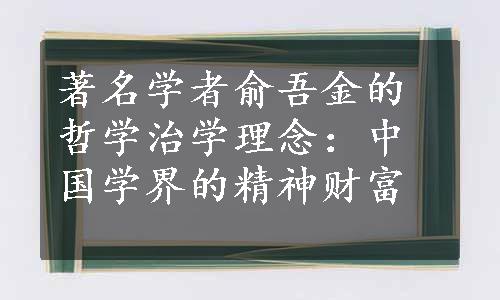 著名学者俞吾金的
哲学治学理念：中
国学界的精神财富